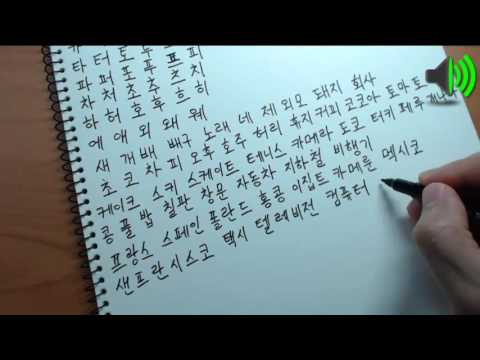 타 터 토 투 트 티
파 퍼 포 푸 프 피
차 처 초 추 츠 치
하 허 호 후 흐 히
예 애 외 왜 웨
새 개 배 배구 노래 네 제 외모 돼지 회사
초 코 차 피 오후 호주 허리 휴지 커피 코코아 토마토
케이크 스키 스케이트 테니스 카메라 도쿄 터키 페루 캐나다
콩 풀 밥 칠판 창문 자동차 지하철 비행기
프랑스 스페인 폴란드 홍콩 이집트 카메룬 멕시코
샌프란시스코 택시 텔레비전 컴퓨터